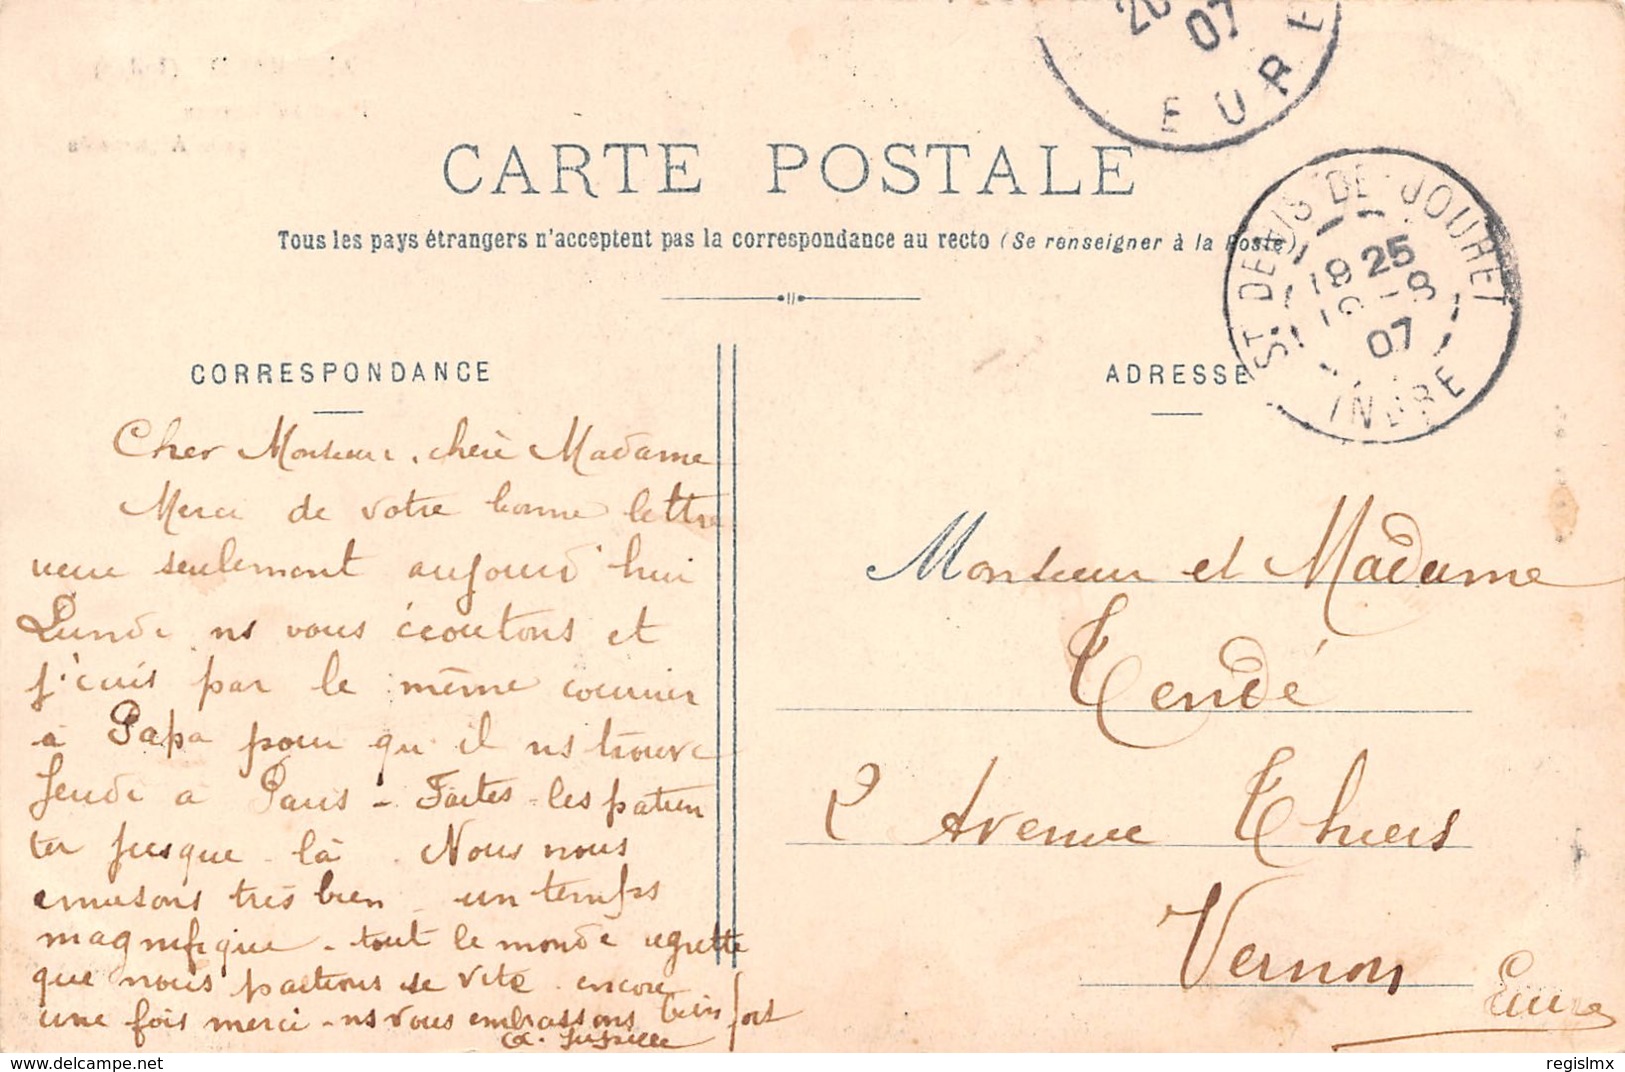 20
07
EURE
CARTE POSTALE
Tous les pays étrangers n'acceptent pas la correspondance au recto (Se renseigner à la Poste)
ST. DENIS-DE-JOUHET
18 25
19-8
07
INDRE
CORRESPONDANCE
Cher Monsieur, chère Madame
Merci de votre bonne lettre
venue seulement aujourd'hui
Lundi ns vous écoutons et
j'écris par le même courrier
à Papa pour qu'il ns trouve
Jeudi à Paris - Faites-les patien
ter jusque-là. Nous nous
amusons très bien - un temps
magnifique - tout le monde regrette
que nous partions si vite. encore
une fois merci - ns vous embrassons bien fort
ADRESSE
Monsieur et Madame
Tendé
2 Avenue Thiers
Vernon
Eure
www.delcampe.net
regislmx